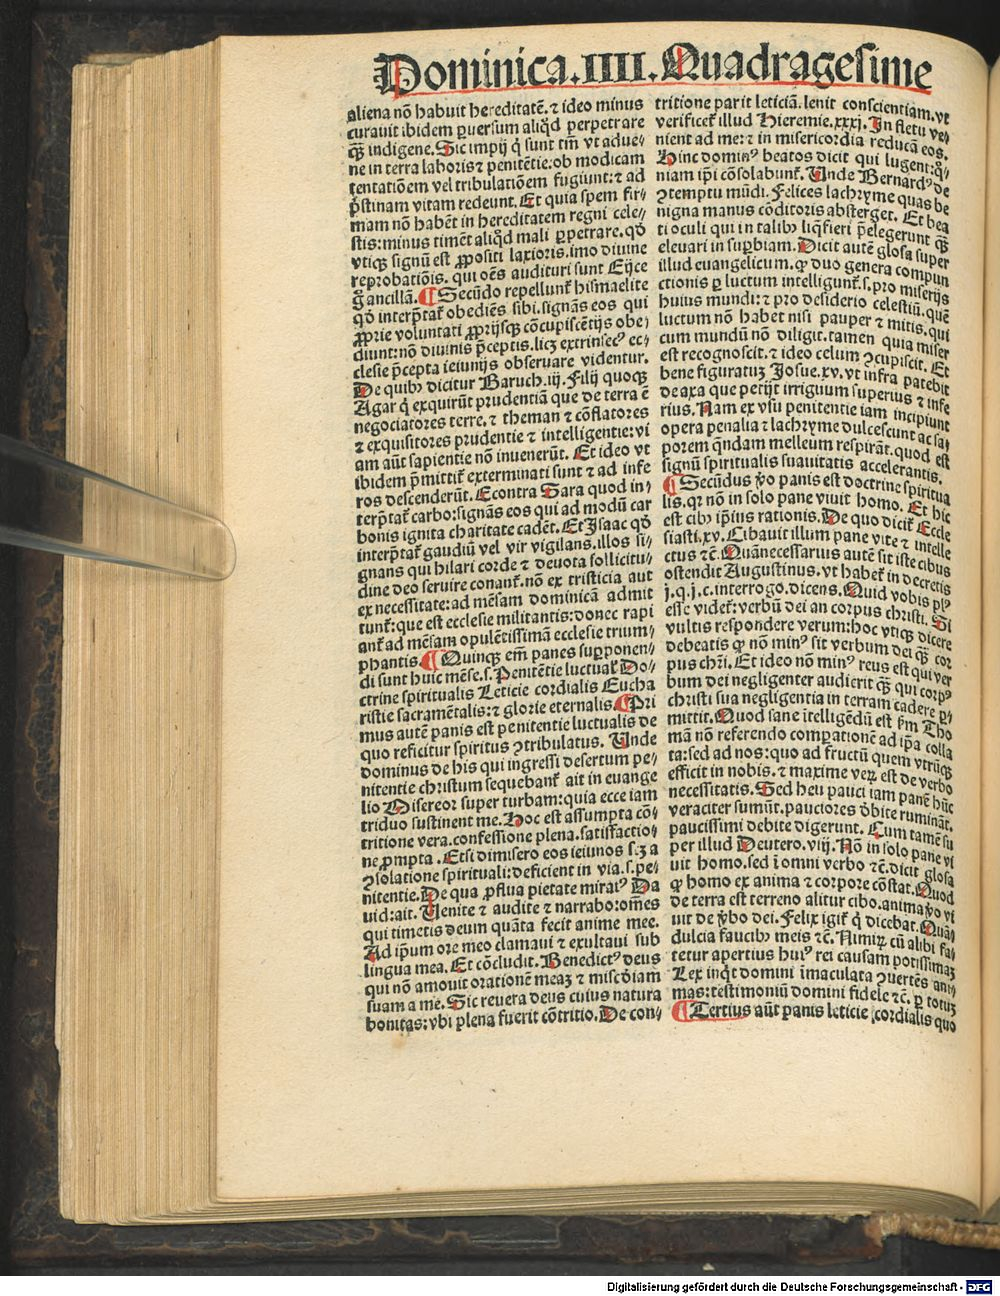 Dominica.IIII.Quadragesime
aliena nō habuit hereditatē.⁊ ideo minus
curauit ibidem ꝑuersum aliqd̄ perpetrare
qꝫ̄ indigene.Sic impij q̄ sunt tm̄ vt adue⸗
ne in terra laboris ⁊ penitētie:ob modicam
tentatiōem vel tribulatiōem fugiunt:⁊ ad
p̄stinam vitam redeunt.Et quia spem fir⸗
mam nō habēt in hereditatem regni cele⸗
stis:minus timēt aliqd̄ mali ꝑpetrare.qd̓
vtiqꝫ signū est ꝓpositi laxioris.imo diuine
reprobatiōis.qui oēs audituri sunt Eijce
g̊ ancillā.¶Secūdo repellunt᷑ hismaelite
qd̓ interp̄tat᷑ obediēs sibi.signās eos qui
ꝓprie voluntati ꝓprijsqꝫ cōcupiscētijs obe⸗
diunt:nō diuinis p̄ceptis.licꝫ extrinsecꝰ ec⸗
clesie p̄cepta ieiunijs obseruare videntur.
De quibꝫ dicitur Baruch.iij.Filij quoqꝫ
Agar q̇ exquirūt prudentiā que de terra ē
negociatores terre.⁊ theman ⁊ cōflatores
⁊ exquisitores prudentie ⁊ intelligentie:vi
am aūt sapientie nō inuenerūt. Et ideo vt
ibidem p̄mittit᷑ exterminati sunt ⁊ ad infe
ros descenderūt.Econtra Sara quod in⸗
terp̄tat᷑ carbo:signās eos qui ad modū car
bonis ignita charitate cadēt.Et Isaac qd̓
interp̄tat᷑ gaudiū vel vir vigilans.illos si⸗
gnans qui hilari corde ⁊ deuota sollicitu⸗
dine deo seruire conant᷑.nō ex tristicia aut
ex necessitate:ad mēsam dominicā admit
tunt᷑:que est ecclesie militantis:donec rapi
ant᷑ ad mēsam opulētissimā ecclesie trium⸗
phantis.¶Quinqꝫ em̄ panes suꝑponen⸗
di sunt huic mēse.s.Penitētie luctual᷑ Do⸗
ctrine spiritualis Leticie cordialis Eucha
ristie sacramētalis:⁊ glorie eternalis.¶Pri
mus autē panis est penitentie luctualis de
quo reficitur spiritus ꝯtribulatus. Unde
dominus de his qui ingressi desertum pe⸗
nitentie christum sequebant᷑ ait in euange
lio Misereor super turbam:quia ecce iam
triduo sustinent me.Hoc est assumpta cō⸗
tritione vera.confessione plena.satisfactio⸗
ne prompta.Etsi dimisero eos ieiunos s.a
ꝯsolatione spirituali:deficient in via.s.pe⸗
nitentie.De qua ꝓflua pietate miratꝰ Da
uid:ait.Uenite ⁊ audite ⁊ narrabo:omēs
qui timetis deum quāta fecit anime mee.
Ad ip̄um ore meo clamaui ⁊ exultaui sub
lingua mea.Et cōcludit.Benedictꝰ deus
qui nō amouit orationē meaꝫ ⁊ misc̄diam
suam a me.Sic reuera deus cuius natura
bonitas:vbi plena fuerit cōtritio.De con⸗
tritione parit leticiā.lenit conscientiam.vt
verificet᷑ illud Hieremie.xxxj.In fletu ve⸗
nient ad me:⁊ in misericordia reducā eos.
Hinc dominꝰ beatos dicit qui lugent:q̄⸗
niam ip̄i cōsolabunt᷑.Unde Bernardꝰ de
ꝯtemptu mūdi.Felices lachryme quas be
nigna manus cōditoris absterget. Et bea
ti oculi qui in talibꝫ liq̄fieri p̄elegerunt qꝫ̄
eleuari in suꝑbiam.Dicit autē glosa super
illud euangelicum.ꝙ duo genera compun
ctionis ꝑ luctum intelligunt᷑.s.pro miserijs
huius mundi:⁊ pro desiderio celestiū.quē
luctum nō habet nisi pauper ⁊ mitis.qui
cum mundū nō diligit.tamen quia miser
est recognoscit.⁊ ideo celum ꝯcupiscit. Et
bene figuratuꝫ Josue.xv.vt infra patebit
de axa que petijt irriguum superius ⁊ infe
rius.Nam ex vsu penitentie iam incipiunt
opera penalia ⁊ lachryme dulcescunt ac sa⸗
porem qn̄dam melleum respirāt.quod est
signū spiritualis suauitatis accelerantis.
¶Secūdus v̄o panis est doctrine spiritua
lis.qꝛ nō in solo pane viuit homo. Et hic
est cibꝫ ip̄ius rationis.De quo dicit᷑ Eccle
siasti.xv.Cibauit illum pane vite ⁊ intelle
ctus ⁊c̄.Quānecessarius autē sit iste cibus
ostendit Augustinus.vt habet᷑ in decretis
j.q.j.c.interrogo.dicens.Quid vobis plꝰ
esse videt᷑:verbū dei an corpus christi. Si
vultis respondere verum:hoc vtiqꝫ dicere
debeatis ꝙ nō minꝰ sit verbum dei qꝫ̄ cor
pus chr̄i.Et ideo nō minꝰ reus est qui ver
bum dei negligenter audierit qꝫ̄ qui corpꝰ
christi sua negligentia in terram cadere ꝑ⸗
mittit.Quod sane ītelligēdū est ẜm Tho
mā nō referendo comꝑationē ad ip̄a colla
ta:sed ad nos:quo ad fructū quem vtrūqꝫ
efficit in nobis.⁊ maxime veꝝ est de verbo
necessitatis.Sed heu pauci iam panē hūc
veraciter sumūt.pauciores d̓bite rumināt.
paucissimi debite digerunt. Cum tamē su
per illud Deutero.viij.Nō in solo pane vi
uit homo.sed ī omni verbo ⁊c̄.dicit glosa
ꝙ homo ex anima ⁊ corpore cōstat.Quod
de terra est terreno alitur cibo.anima v̄o vi
uit de v̄bo dei.Felix igit᷑ q̇ dicebat.Quā⸗
dulcia faucibꝫ meis ⁊c̄.Nimiꝝ cū alibi fa⸗
tetur apertius huiꝰ rei causam potissimaꝫ
Lex inqt̄ domini īmaculata ꝯuertēs ani⸗
mas:testimoniū domini fidele ⁊c̄.ꝑ totuꝫ
¶Tertius aūt panis leticie cordialis quo
Digitalisierung gefördert durch die Deutsche Forschungsgemeinschaft - DFG